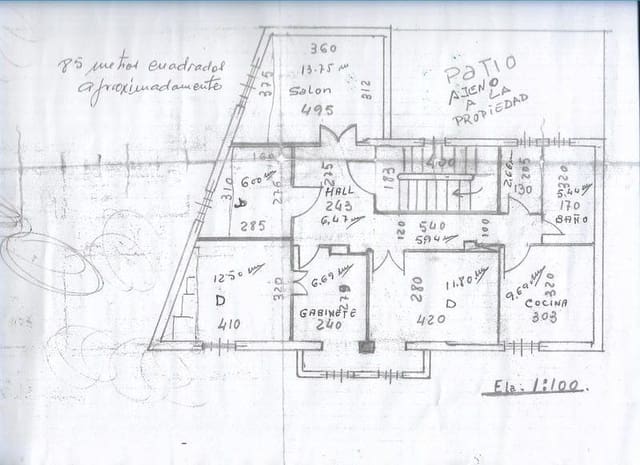 85 metros cuadrados
aproximadamente
360
13.75 m
Salon
495
375
312
PATIO
AJENO
A LA
PROPIEDAD
160
600 m
D
285
310
236
275
HALL
243
6,47 m
183
400
2,66 m
205
130
320
5,44 m
170
BAÑO
540
594 m
120
100
12.50 m
D
410
320
6.69 m
279
GABINETE
240
280
11.80 m
D
420
9.69 m
320
COCINA
303
Ela. 1:100.